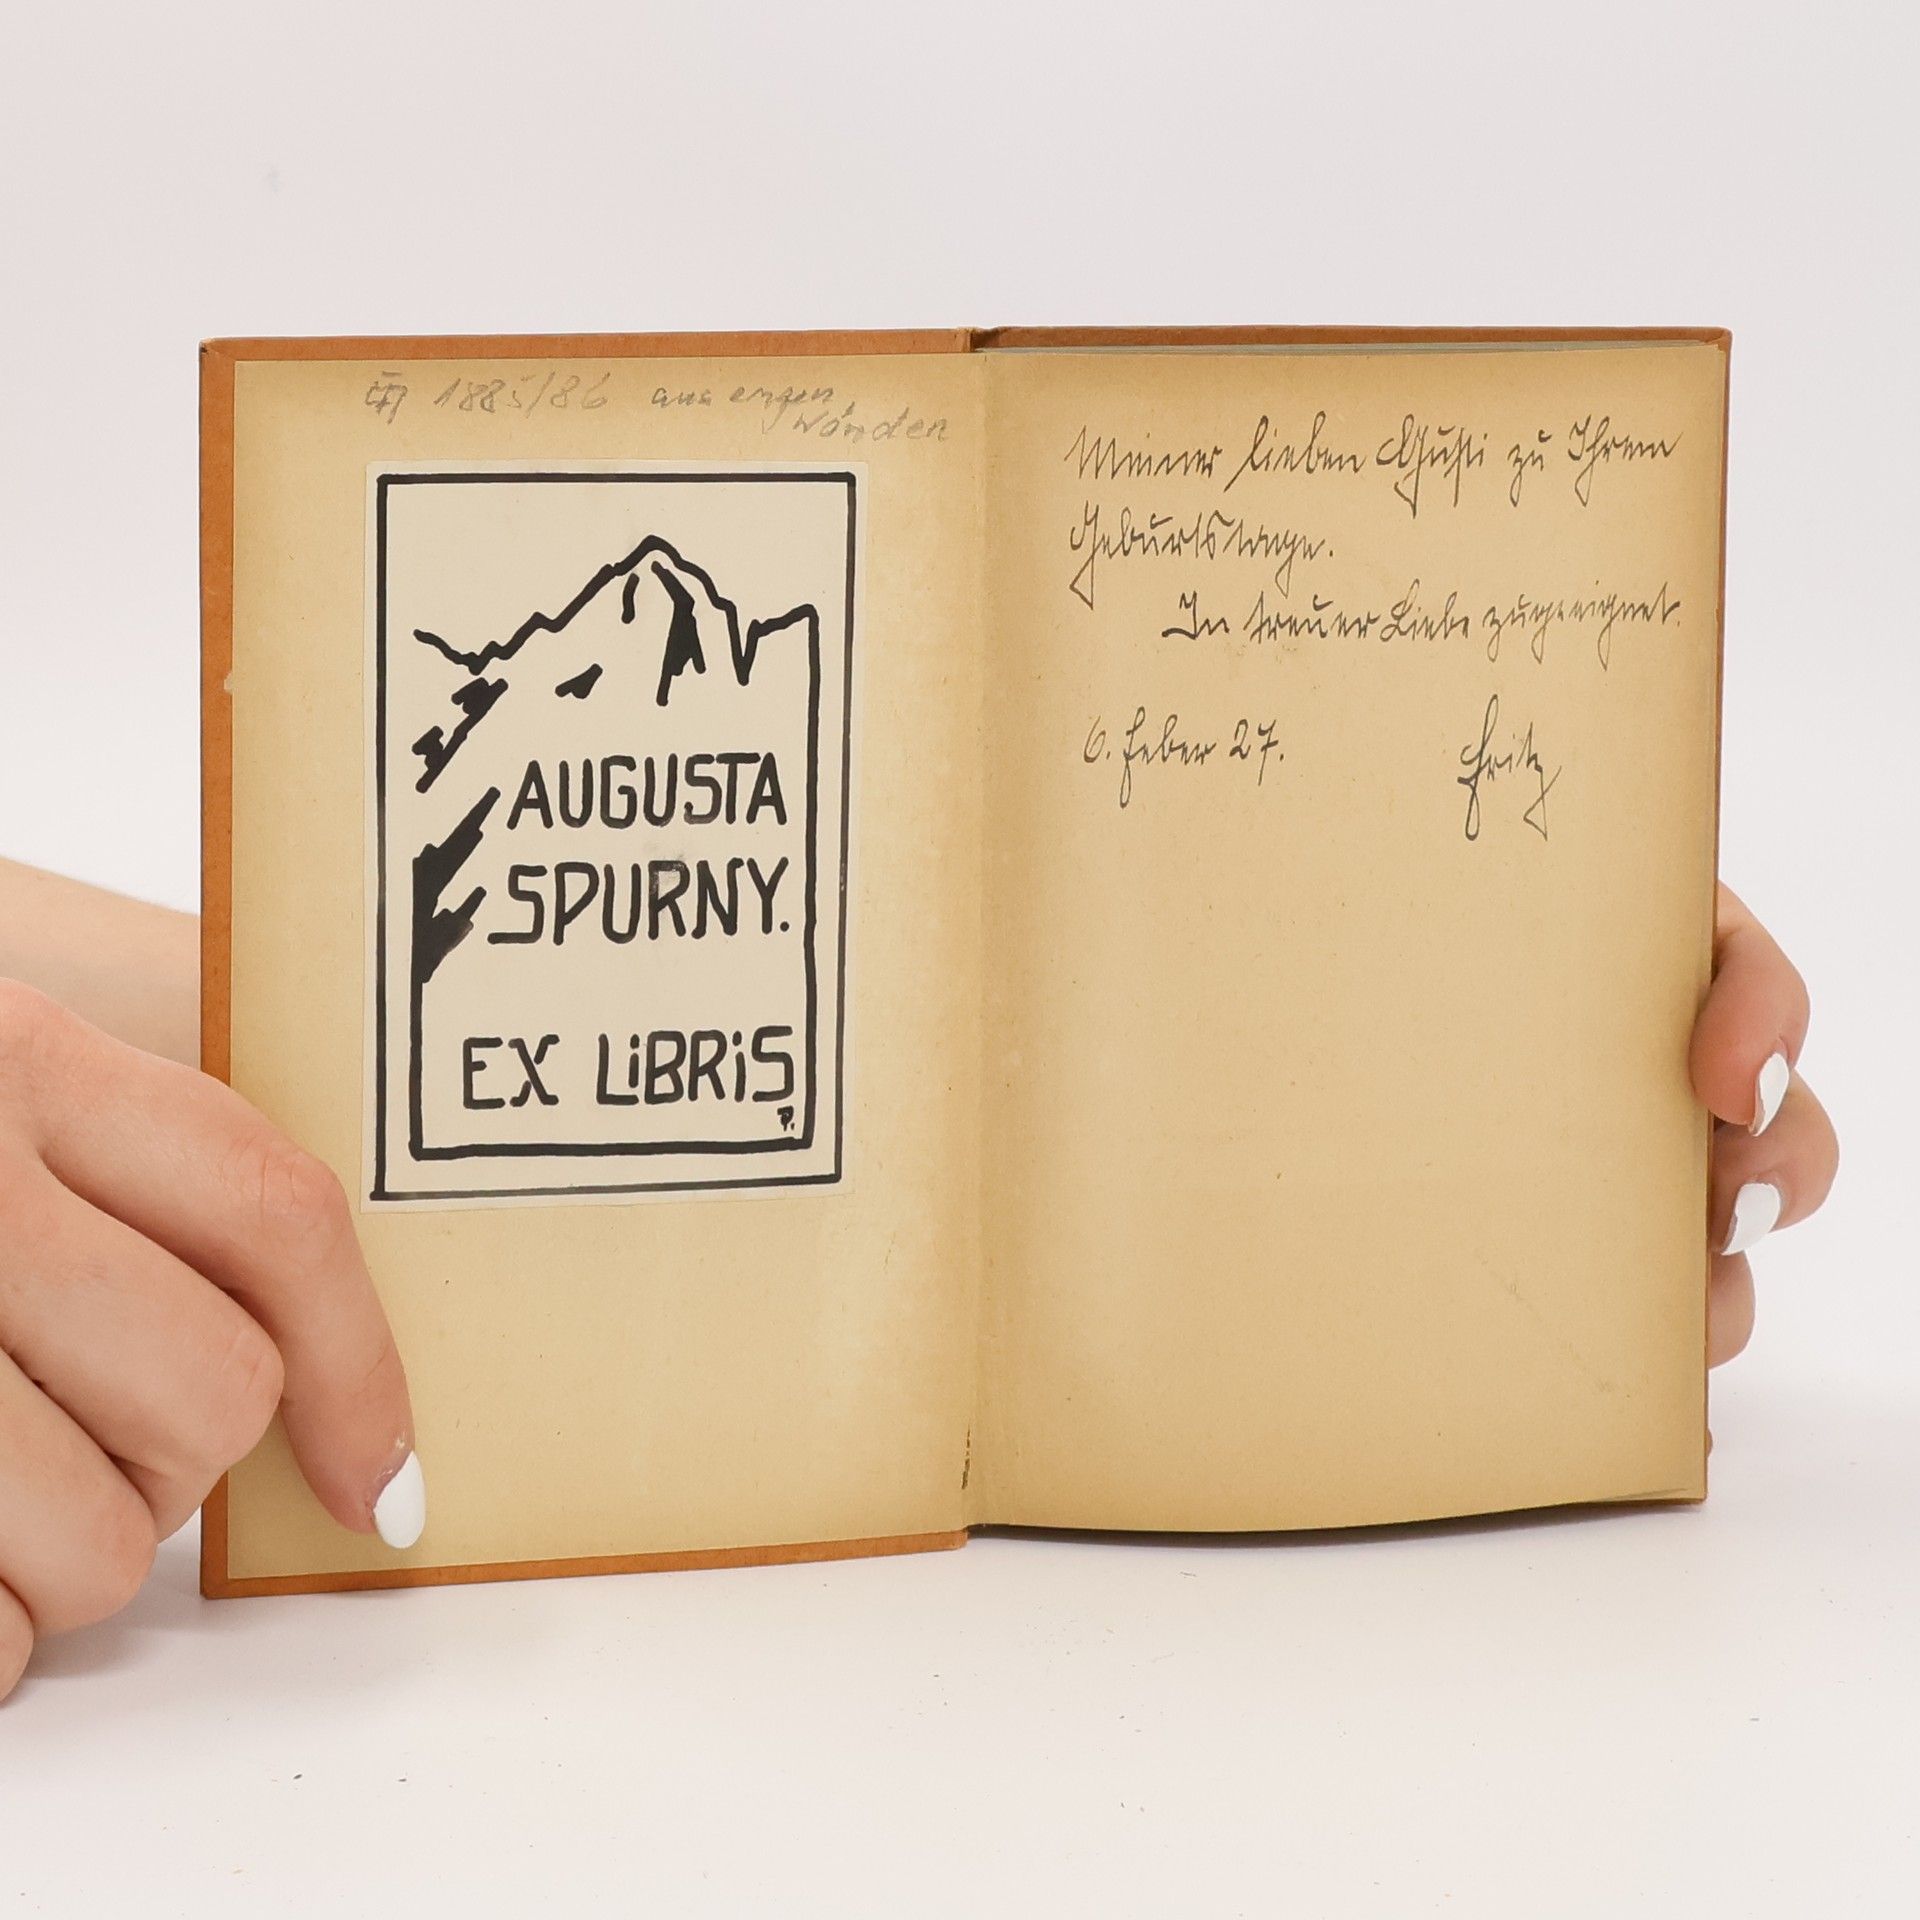 1885/86 aus engen
Wänden
AUGUSTA
SPURNY.
EX LiBRiS
P.
Meiner lieben Gusti zu Ihrem
Geburtstage.
In treuer Liebe zugeeignet.
6. Feber 27.
Fritz